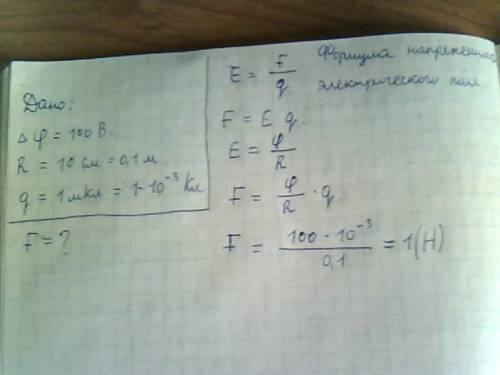 Дано:
Δφ = 100 В.
R = 10 см = 0,1 м
q = 1 мкл = 1·10⁻³ Кл
F = ?
E = F/q Формула
электрического поля
F = E q.
E = φ/R
F = φ/R · q
F = 100 · 10⁻³ / 0,1 = 1(Н)